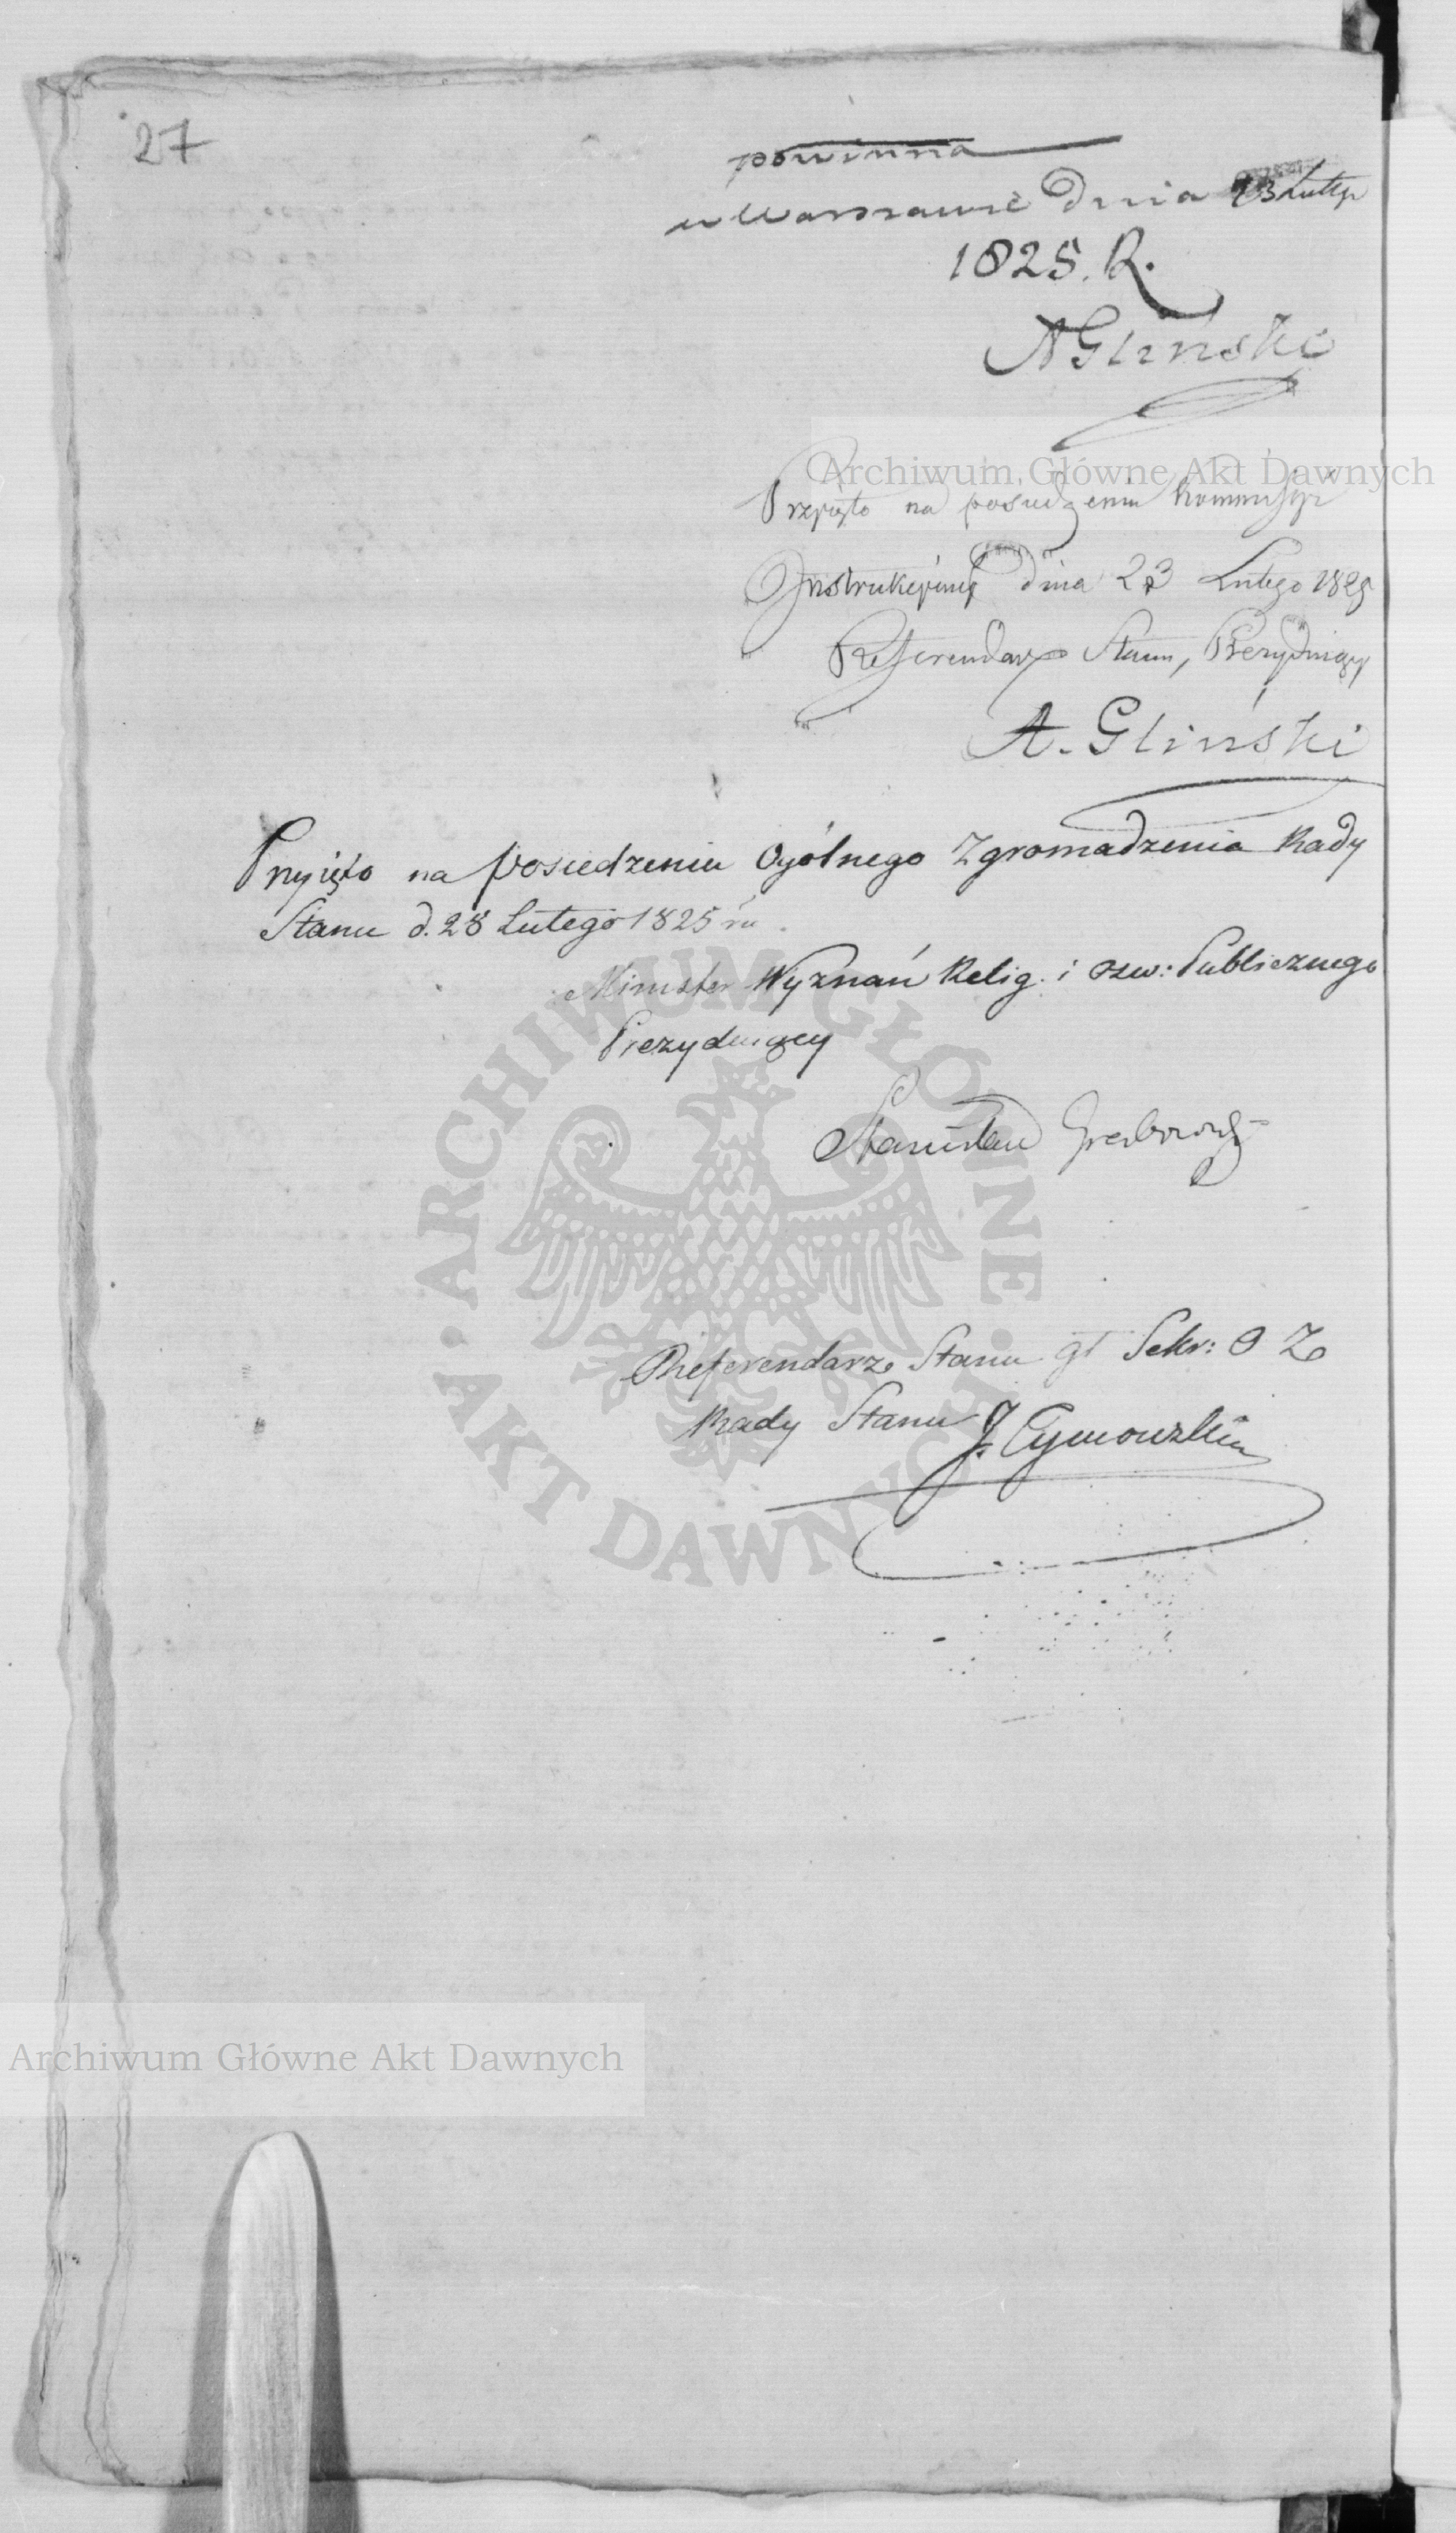 27
powinna
w Warszawie Dnia 23 Lutego
1825. R.
AGliński
Archiwum Główne Akt Dawnych
Przyięto na posiedzeniu Kommissyi
Instrukcyiney Dnia 23 Lutego 1825
Referendarz Stanu, Prezyduiący
A. Gliński
Przyięto na posiedzeniu Ogólnego Zgromadzenia Rady
Stanu d. 28 Lutego 1825 ru
Minister Wyznań Relig. i osw: Publicznego
Prezyduiący
Stanisław Grabowski
Referendarz Stanu gł Sekr: O Z
Rady Stanu J. Tymowski
ARCHIWUM GŁÓWNE AKT DAWNYCH
Archiwum Główne Akt Dawnych